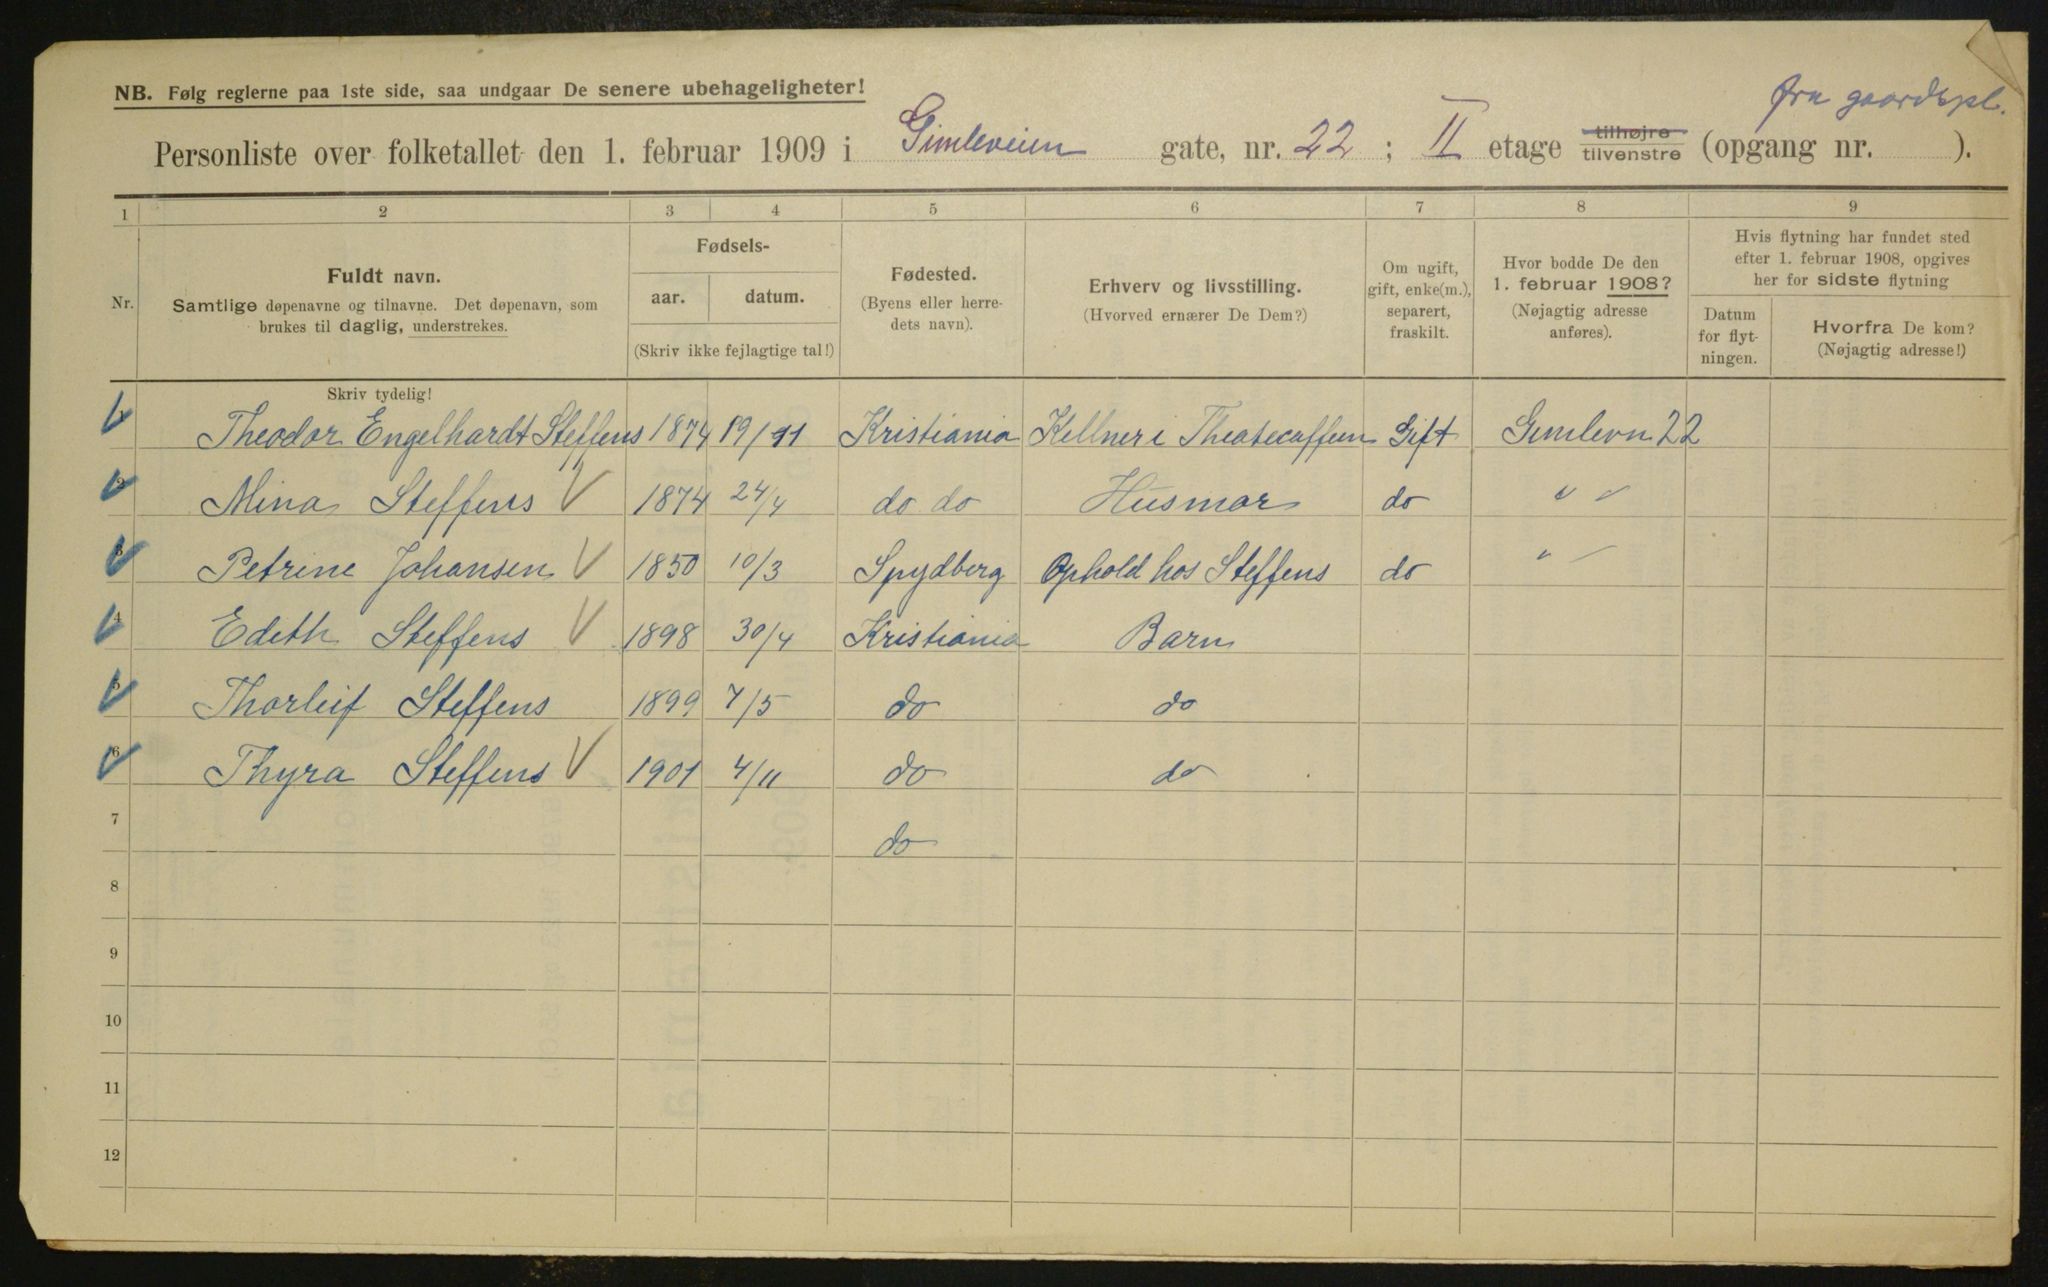 NB. Følg reglerne paa 1ste side, saa undgaar De senere ubehageligheter!
fra gaardspl.
Personliste over folketallet den 1. februar 1909 i Gimleveien gate, nr. 22; II etage tilhøjre tilvenstre (opgang nr. ).
1 2 3 4 5 6 7 8 9
Nr.
Fuldt navn.
Samtlige døpenavne og tilnavne. Det døpenavn, som
brukes til daglig, understrekes.
Fødsels-
aar. datum.
(Skriv ikke fejlagtige tal!)
Fødested.
(Byens eller herre-
dets navn).
Erhverv og livsstilling.
(Hvorved ernærer De Dem?)
Om ugift,
gift, enke(m.),
separert,
fraskilt.
Hvor bodde De den
1. februar 1908?
(Nøjagtig adresse
anføres).
Hvis flytning har fundet sted
efter 1. februar 1908, opgives
her for sidste flytning
Datum
for flyt-
ningen.
Hvorfra De kom?
(Nøjagtig adresse!)
Skriv tydelig!
1 Theodor Engelhardt Steffens 1874 19/11 Kristiania Kellner i Theatecaffeen Gift Gimlevn 22
2 Mina Steffens 1874 24/4 do do Husmor do " "
3 Petrine Johansen 1850 10/3 Spydberg Ophold hos Steffens do " "
4 Edith Steffens 1898 30/4 Kristiania Barn
5 Thorleif Steffens 1899 7/5 do do
6 Thyra Steffens 1901 4/11 do do
7 do
8
9
10
11
12